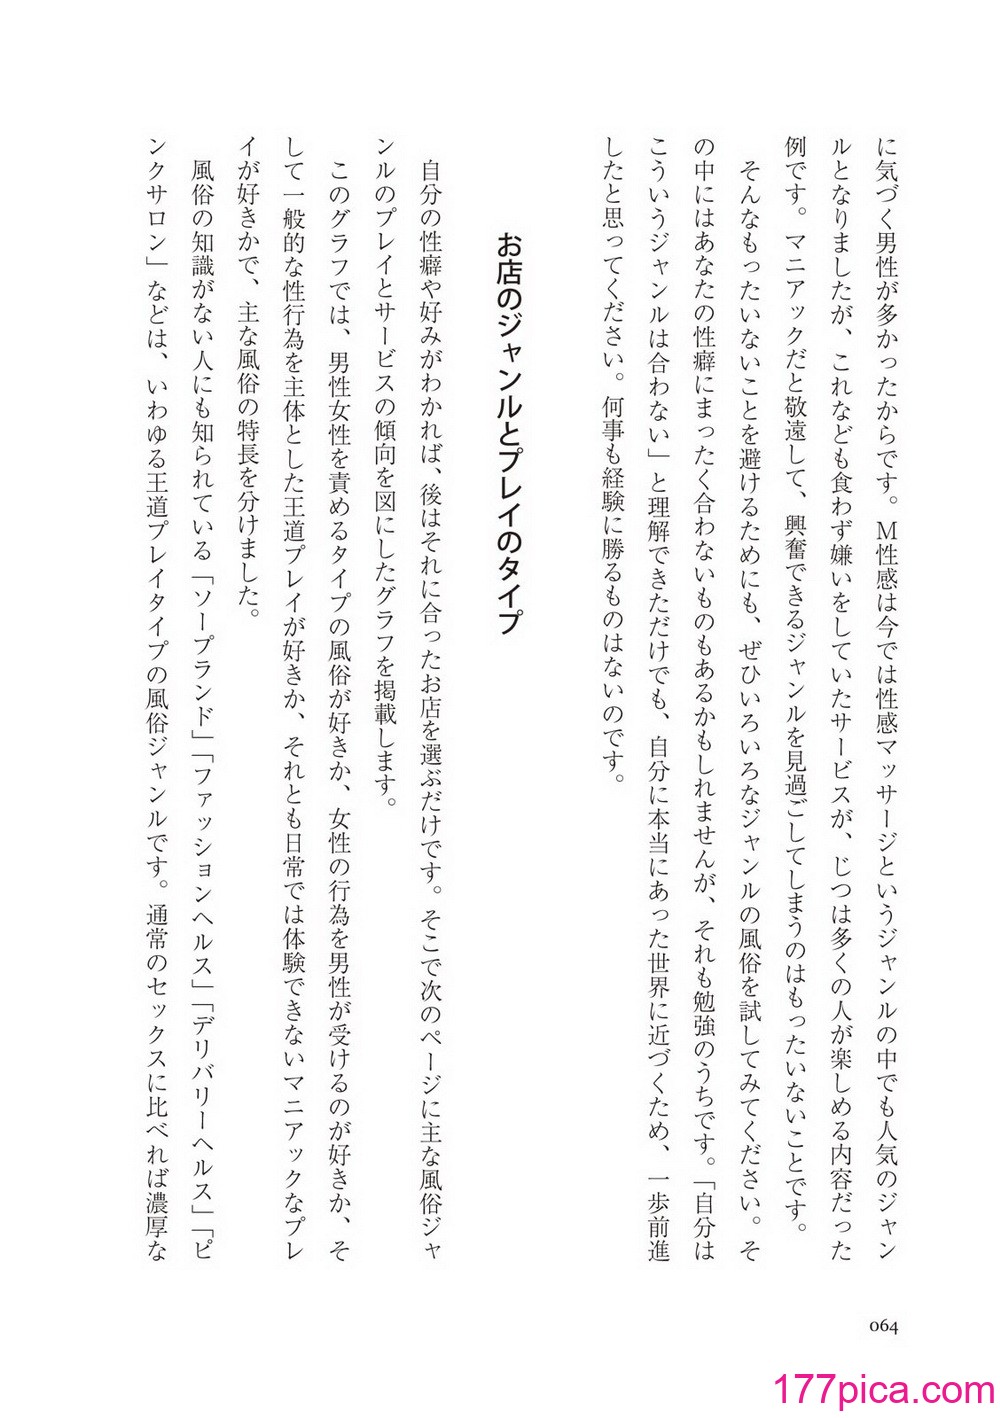 に気づく男性が多かったからです。M性感は今では性感マッサージというジャンルの中でも人気のジャン
ルとなりましたが、これなども食わず嫌いをしていたサービスが、じつは多くの人が楽しめる内容だった
例です。マニアックだと敬遠して、興奮できるジャンルを見過ごしてしまうのはもったいないことです。
そんなもったいないことを避けるためにも、ぜひいろいろなジャンルの風俗を試してみてください。そ
の中にはあなたの性癖にまったく合わないものもあるかもしれませんが、それも勉強のうちです。「自分は
こういうジャンルは合わない」と理解できただけでも、自分に本当にあった世界に近づくため、一歩前進
したと思ってください。何事も経験に勝るものはないのです。
お店のジャンルとプレイのタイプ
自分の性癖や好みがわかれば、後はそれに合ったお店を選ぶだけです。そこで次のページに主な風俗ジャ
ンルのプレイとサービスの傾向を図にしたグラフを掲載します。
このグラフでは、男性女性を責めるタイプの風俗が好きか、女性の行為を男性が受けるのが好きか、そ
して一般的な性行為を主体とした王道プレイが好きか、それとも日常では体験できないマニアックなプレ
イが好きかで、主な風俗の特長を分けました。
風俗の知識がない人にも知られている「ソープランド」「ファッションヘルス」「デリバリーヘルス」「ピ
ンクサロン」などは、いわゆる王道プレイタイプの風俗ジャンルです。通常のセックスに比べれば濃厚な
064
177pica.com